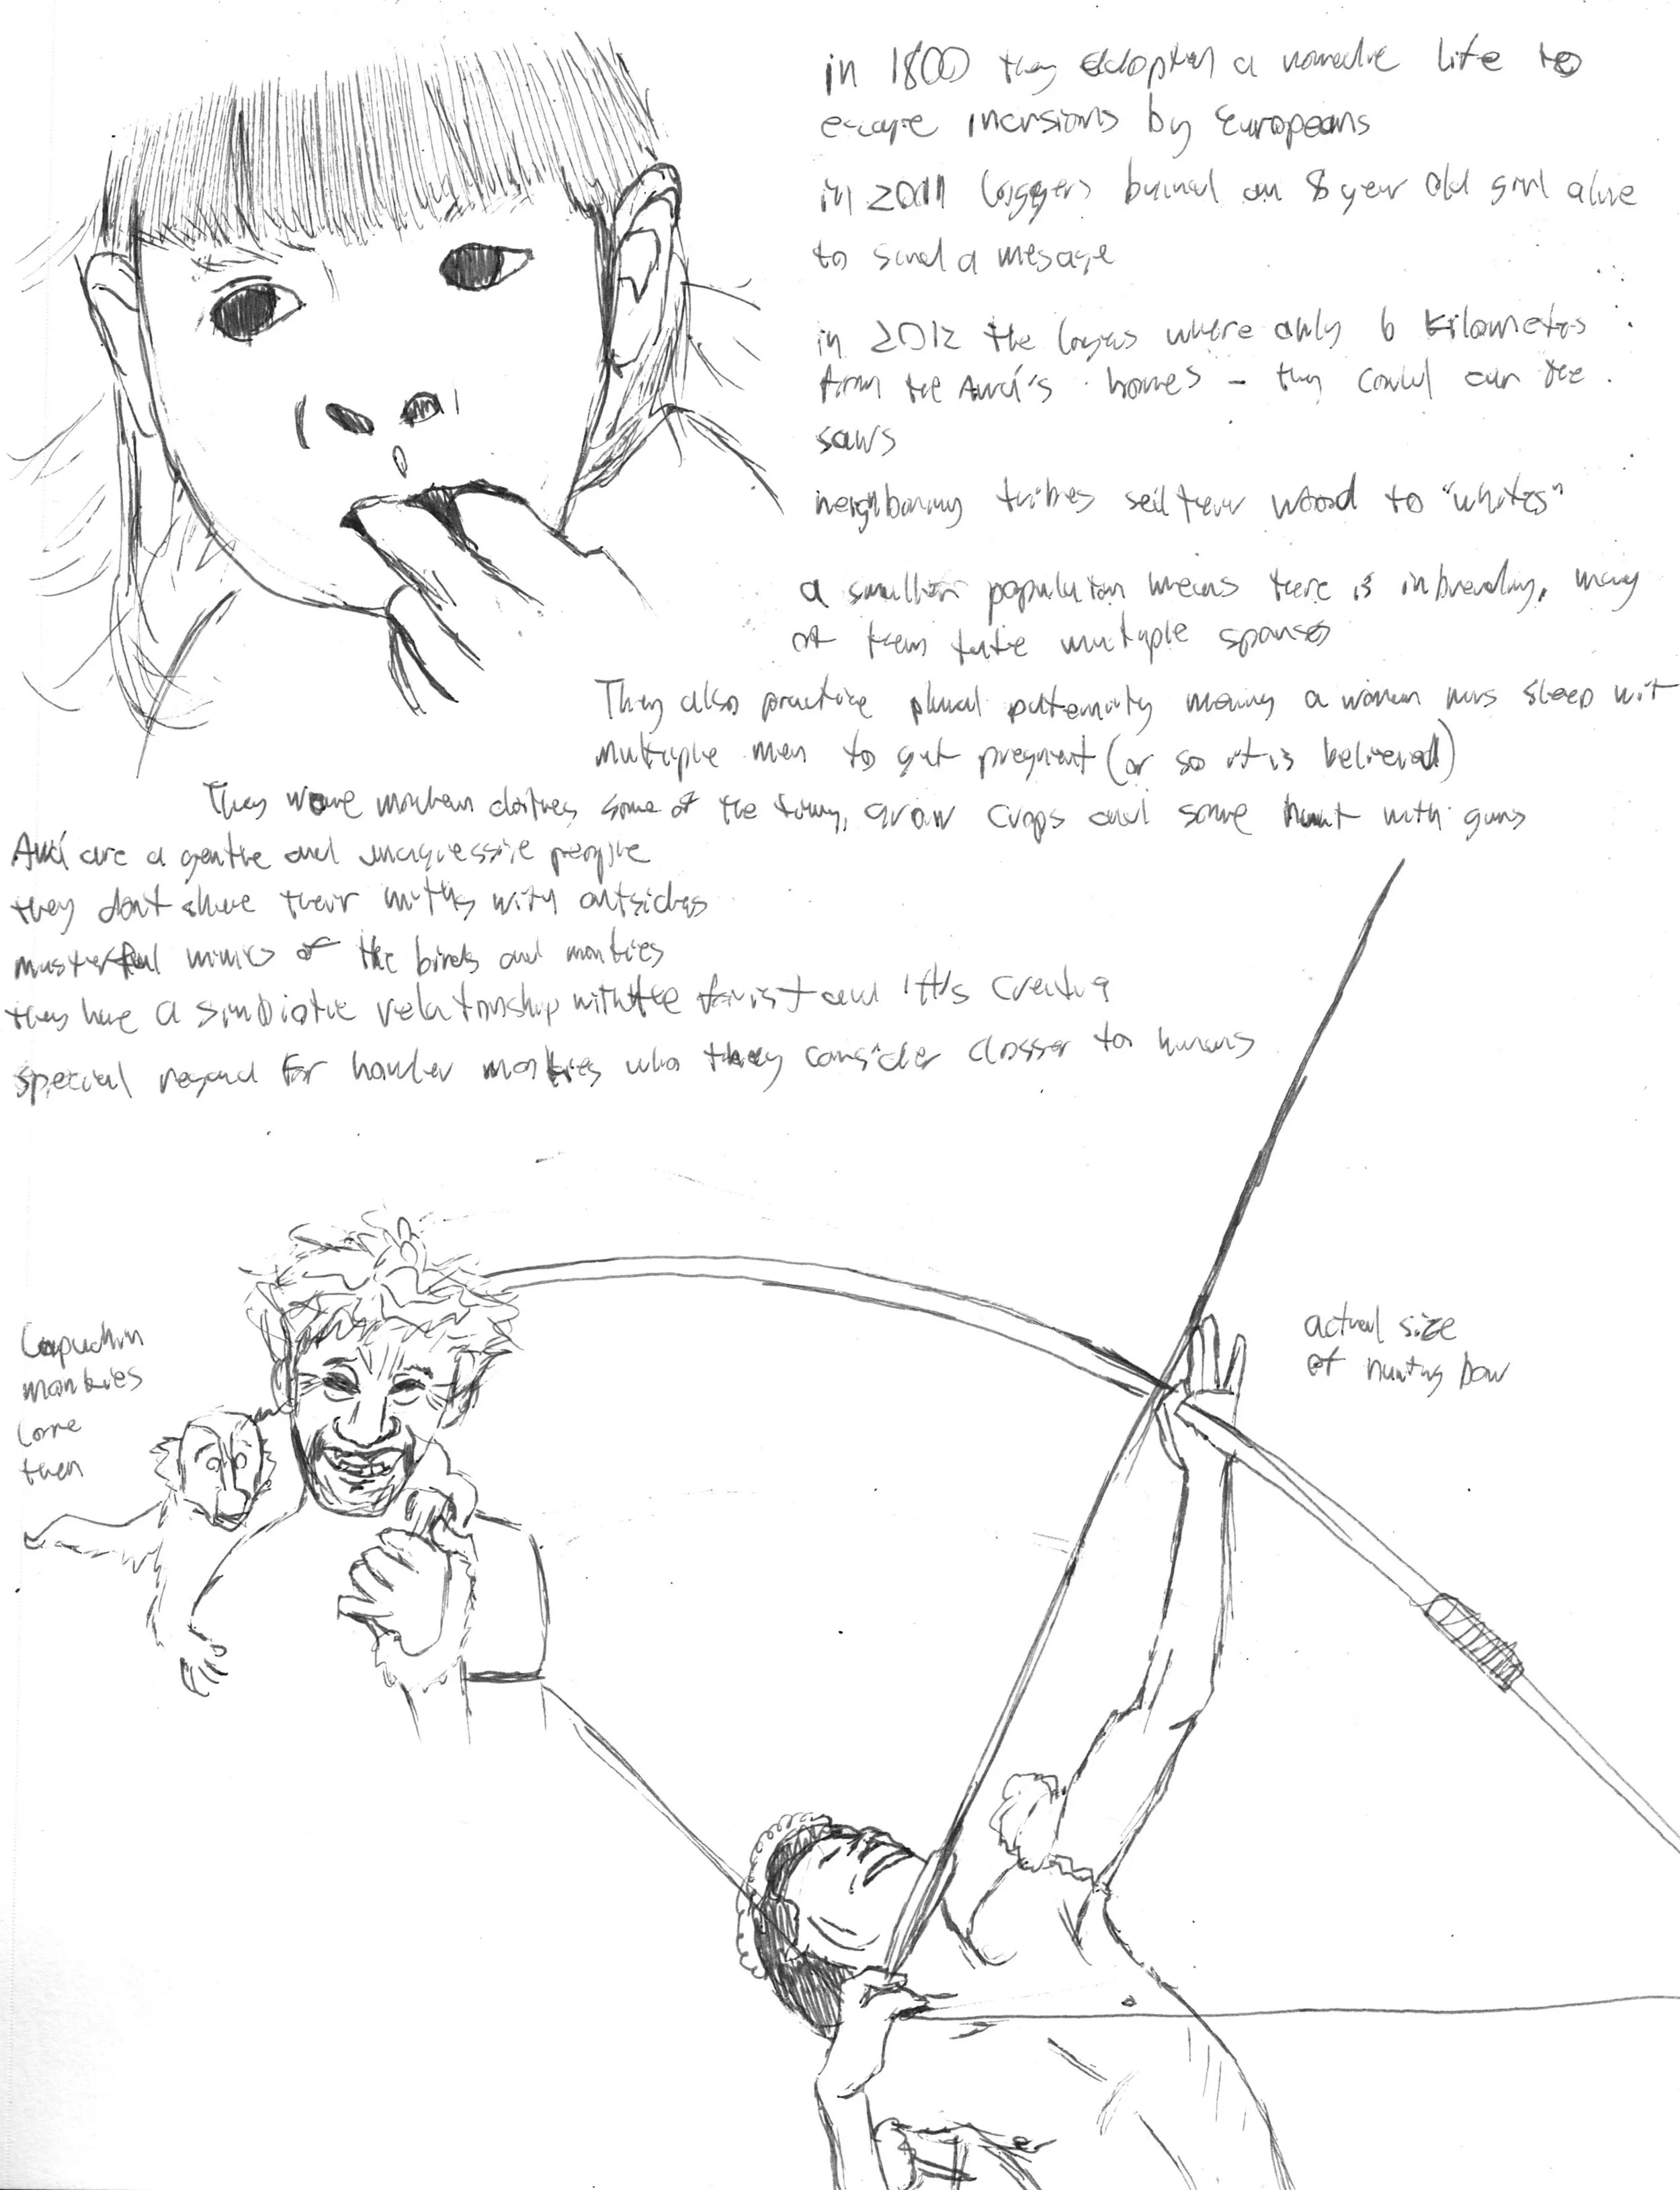 in 1800 they addopted a nomadic life to
escape incursions by Europeans
in 2011 loggers burned an 8 year old girl alive
to send a mesage
in 2012 the logers where only 6 kilometers
from the Awá's homes - they could ear the
saws
neighboring tribes sell their wood to "whites"
a smaller population means there is inbreeding, many
of them take multiple spouses
They also practice plural paternity meaning a woman mus sleep wit
multiple men to get pregnant (or so it is believed)
They wore modern clothes some of the time, grow crops and some hunt with guns
Awá are a gentle and unagressive people
they dont share their myths with outsiders
masterful mimics of the birds and monkies
they have a simbiotic relationship with the forist and it's
special regard for howler monkies who they consider closser to humans
Capuchin
monkies
love
them
actual size
of hunting bow